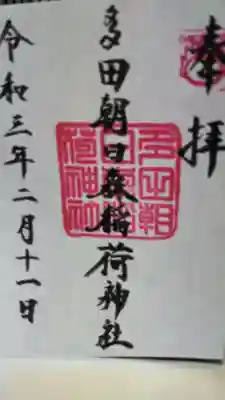 奉拝
多田朝日森稲荷神社
令和三年二月十一日